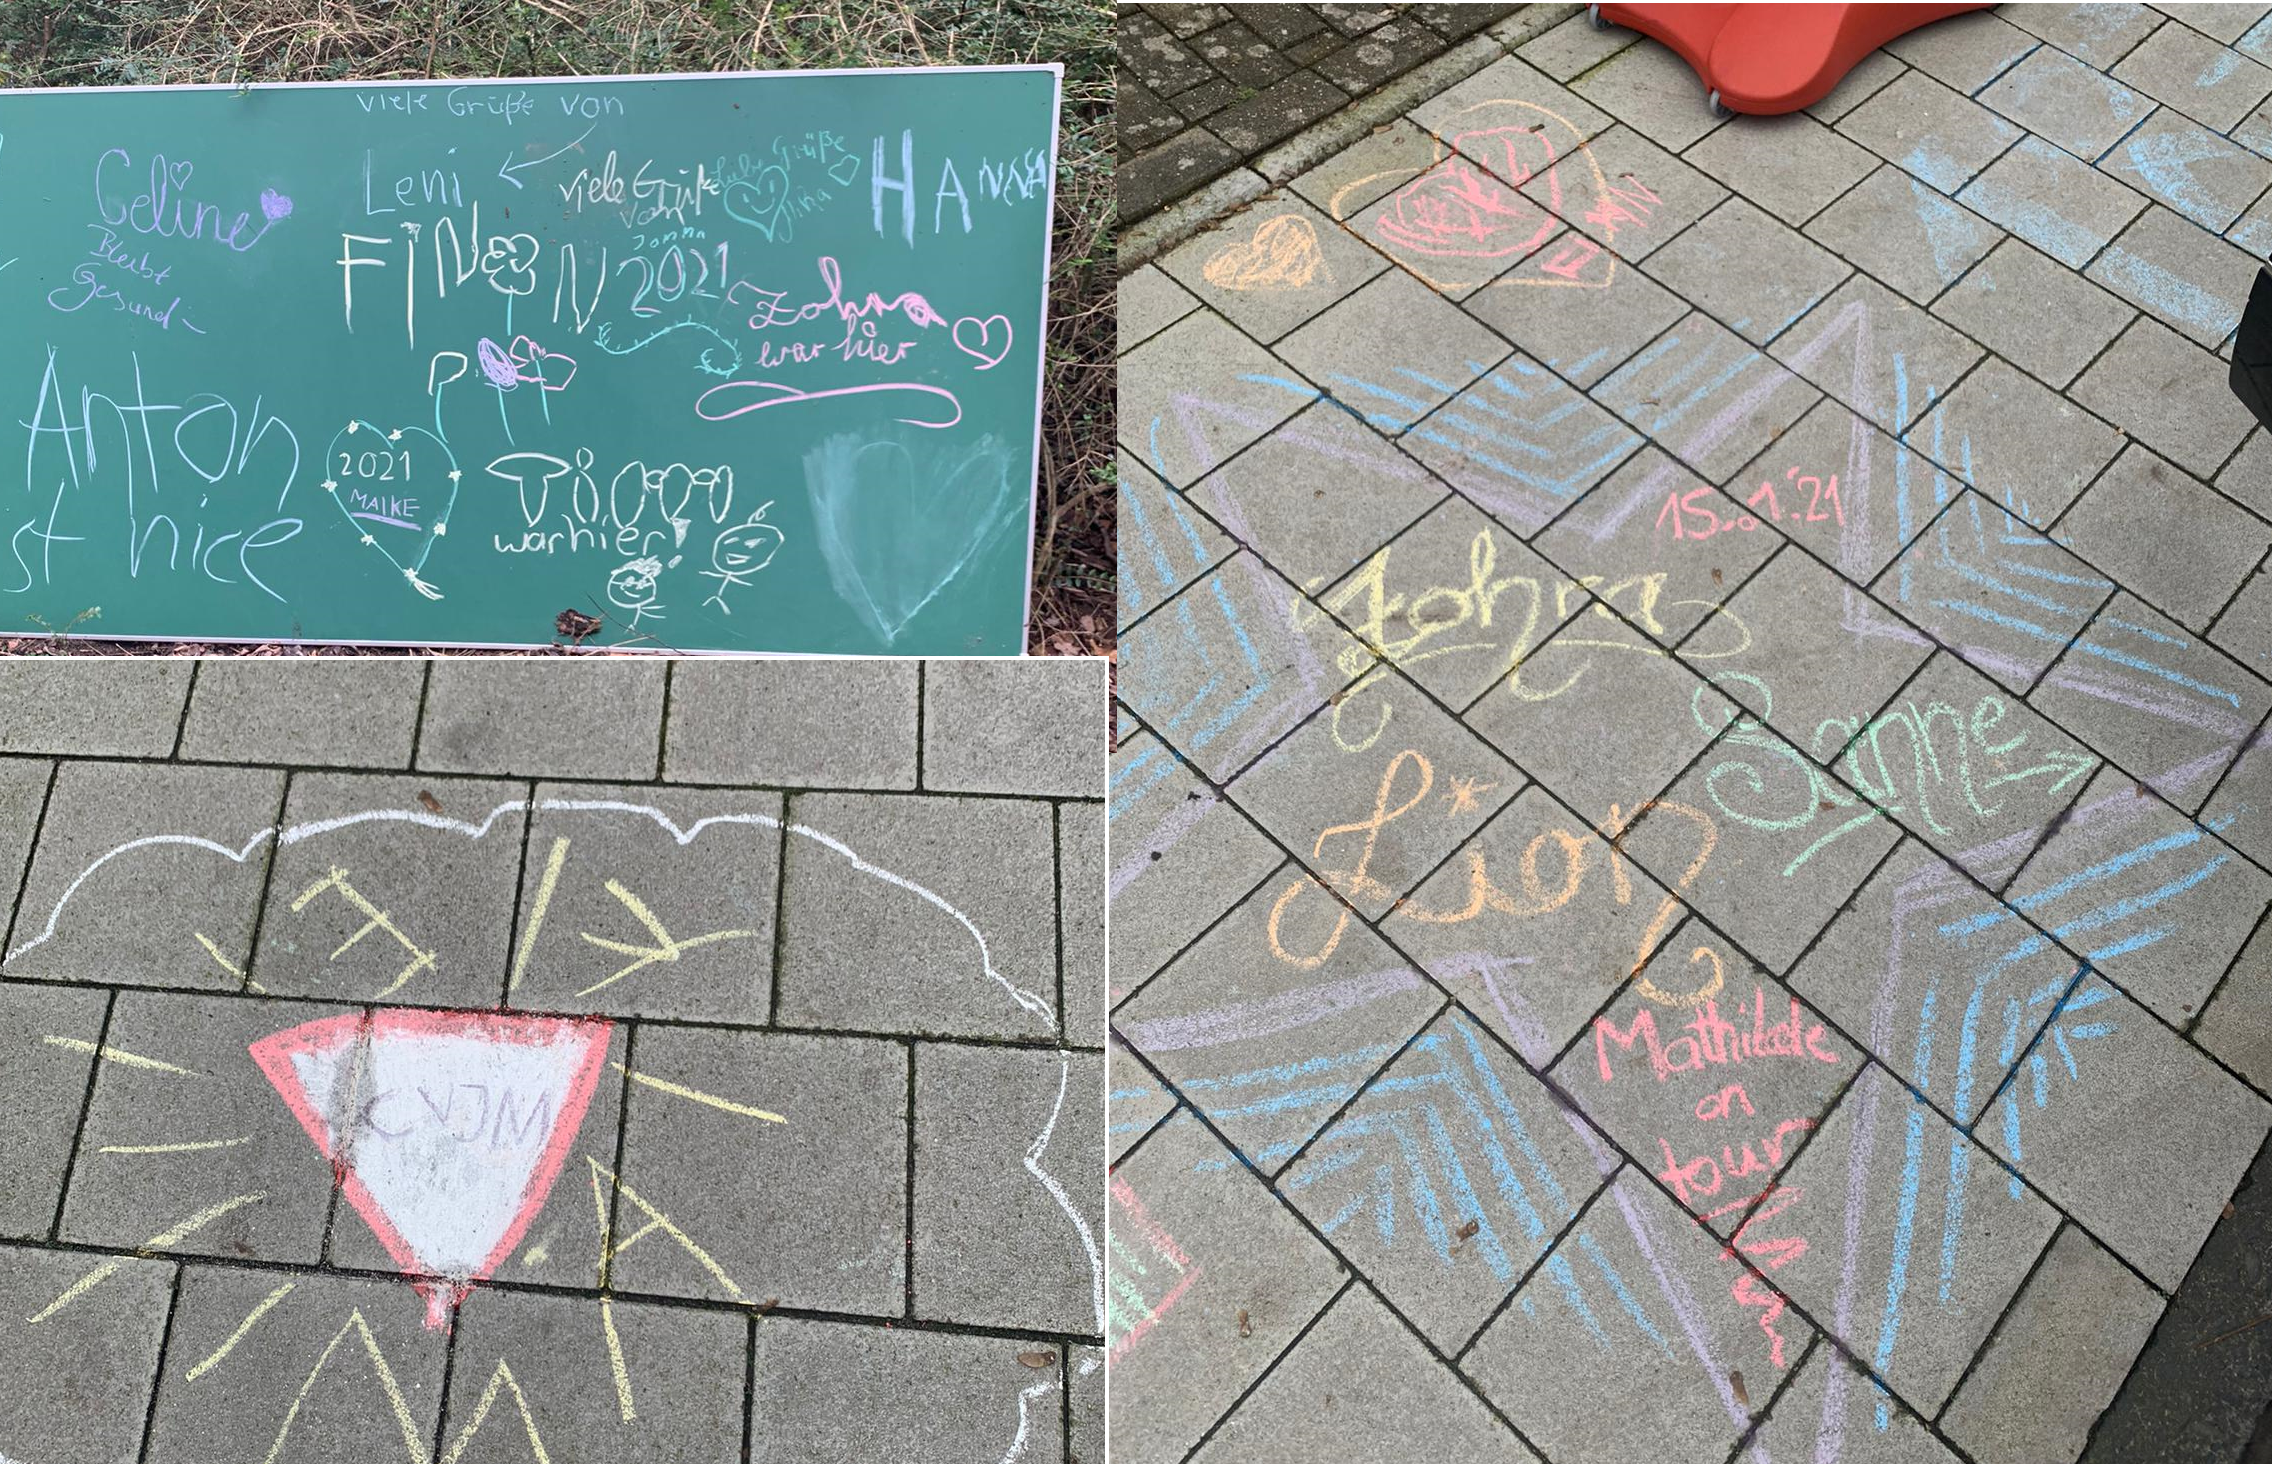 viele Grüße von
Celine
Bleibt
Gesund
Leni
viele Grüße
von
Jomna
Liebe Grüße
HANNA
FINN
2021
Zohra
war hier
Anton
st nice
2021
MAIKE
Timm
war hier!
CVJM
15.01.'21
Zohra
Sanne
Lion
Mathilde
on
tour